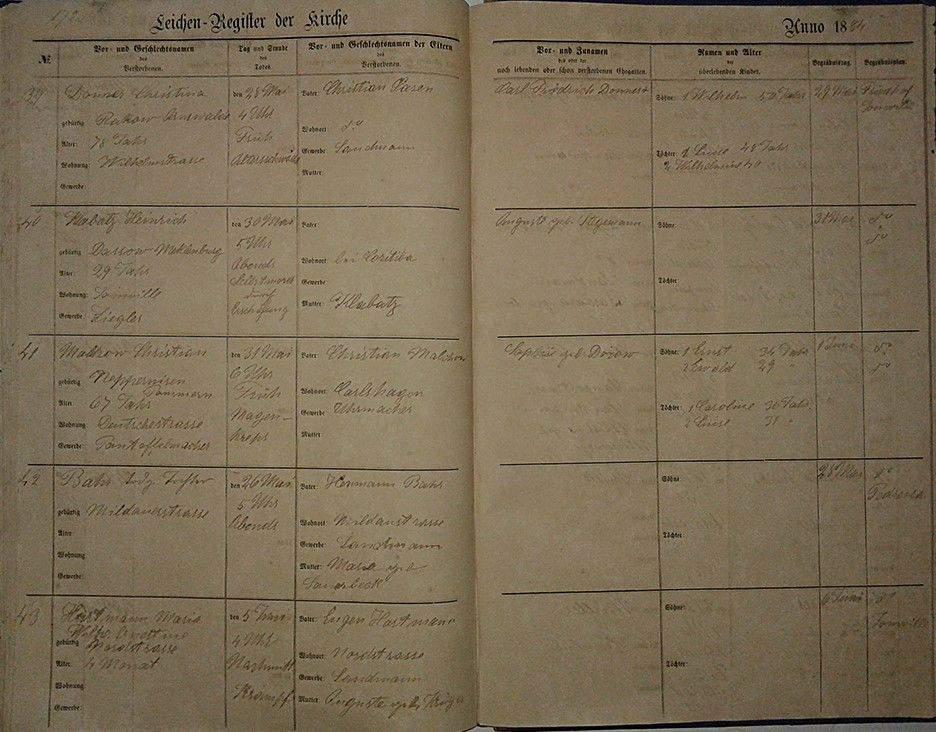 Leichen-Register der Kirche
Anno 1884
№
Vor- und Geschlechtsnamen des Verstorbenen.
Tag und Stunde des Todes.
Vor- und Geschlechtsnamen der Eltern des Verstorbenen.
Vor- und Zunamen des oder der noch lebenden oder schon verstorbenen Ehegatten.
Namen und Alter der überlebenden Kinder.
Begräbnistag.
Begräbnisplatz.
39
Donner Christina
gebürtig
Alter: 78 Jahr
Wohnung: Wilhelmstrasse
Gewerbe:
den 28 Mai
4 Uhr
Früh
Altersschwäche
Vater: Christian Pasen
Wohnort do
Gewerbe: Landmann
Mutter:
Carl Friedrich Donner
Söhne: 1 Wilhelm 52 Jahr
Töchter: 1 Luise 48 Jahr
2 Wilhelmine 40 "
29 Mai
Friedhof
Joinville
40
Klabatz Heinrich
gebürtig Dassow Meklenburg
Alter: 29 Jahr
Wohnung: Joinville
Gewerbe: Ziegler
den 30 Mai
5 Uhr
Abends
Selbstmord
durch
Vater:
Wohnort bei Coritiba
Gewerbe:
Mutter: Klabatz
Auguste geb. Stegemann
Söhne:
Töchter
31 Mai
do
do
41
Christian
gebürtig
Pommern
Alter: 67 Jahr
Wohnung: Deutschestrasse
Gewerbe: Pantoffelmacher
den 31 Mai
6 Uhr
Früh
Magen-
krebs
Vater: Christian
Wohnort: Carlshagen
Gewerbe: Uhrmacher
Mutter:
Sophie geb. Dorow
Söhne: 1 Ernst 34 Jahr
2 Ewald 29 "
Töchter: 1 Caroline 36 Jahr
2 Luise 31 "
1 Juni
do
do
42
Bahr todg. Tochter
gebürtig Mildauerstrasse
Alter:
Wohnung:
Gewerbe:
den 26 Mai
5 Uhr
Abends
Vater: Hermann Bahr
Wohnort Mildaustrasse
Gewerbe: Landmann
Mutter: Maria geb
Söhne
Töchter
28 Mai
do
Pedreira
43
Hartmann Maria
gebürtig Nordstrasse
Alter: 4 Monat
Wohnung:
Gewerbe:
den 5 Juni
4 Uhr
Nachmitt
Krampf
Vater: Eugen Hartmann
Wohnort: Nordstrasse
Gewerbe: Landmann
Mutter: Auguste geb. Krüger
Söhne:
Töchter:
6 Juni
do
Joinville